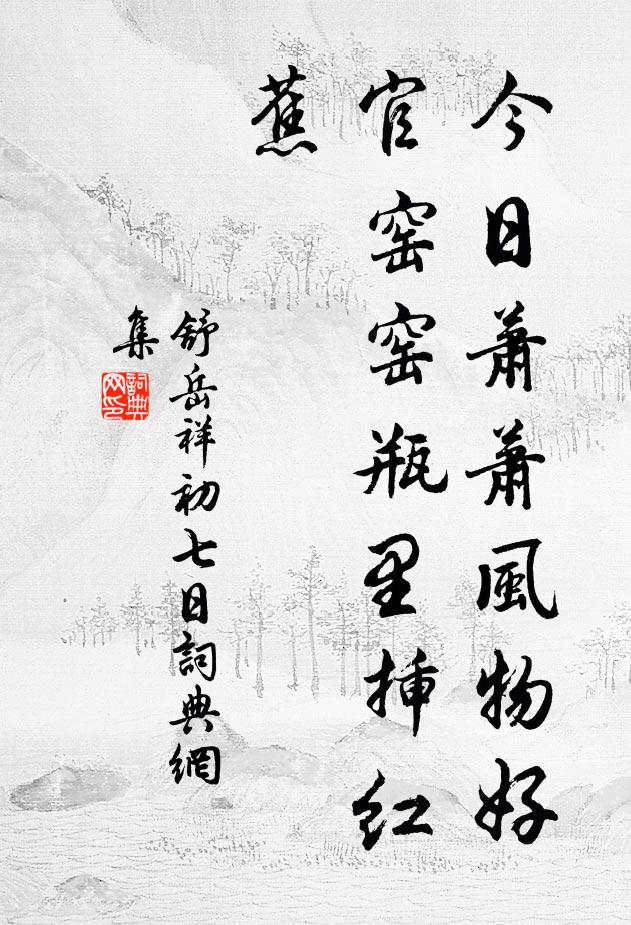 今日蕭蕭風物好
官窑窑瓶里挿红
蕉
舒岳祥初七日詞典網
集
詞典
网印